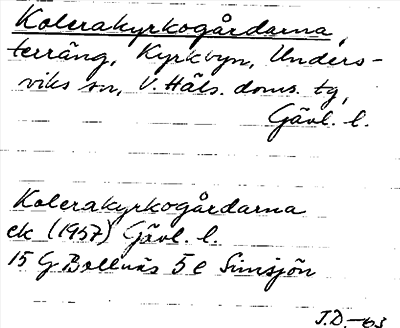 Kolerakyrkogårdarna,
terräng, Kyrkbyn, Unders-
viks sn, V. Häls. doms. tg,
Gävl. l.
Kolerakyrkogårdarna
ek (1957) Gävl. l.
15 G Bollnäs 5 e Simsjön
J.D-63